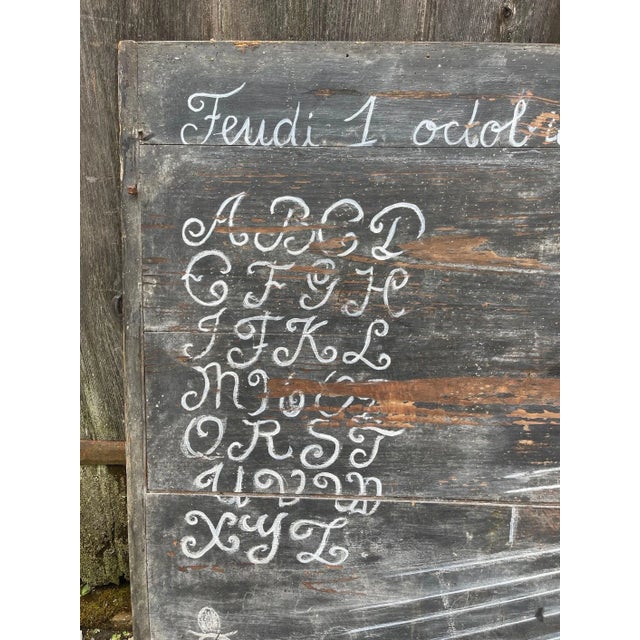 Jeudi 1 octobr
A B C D
E F G H
I J K L
M N O P
Q R S T
U V W
X Y Z